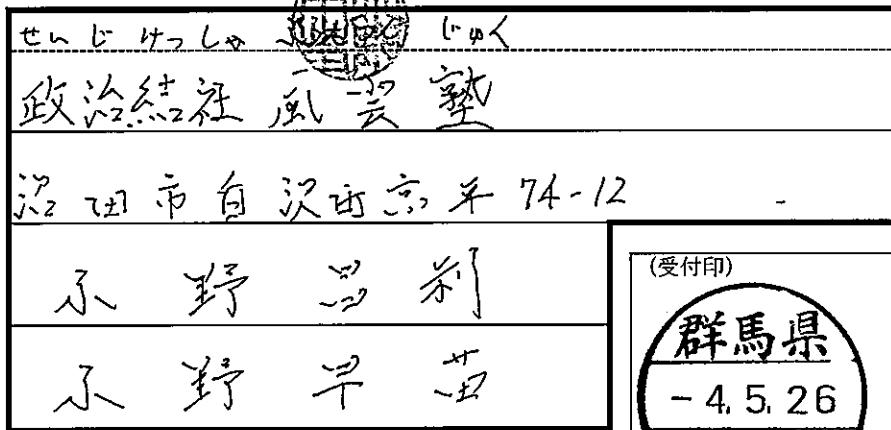 せいじけっしゃ ふううんじゅく
政治結社 風雲塾
沼田市白沢町高平74-12
小野 利
小野早苗
(受付印)
群馬県
-4.5.26